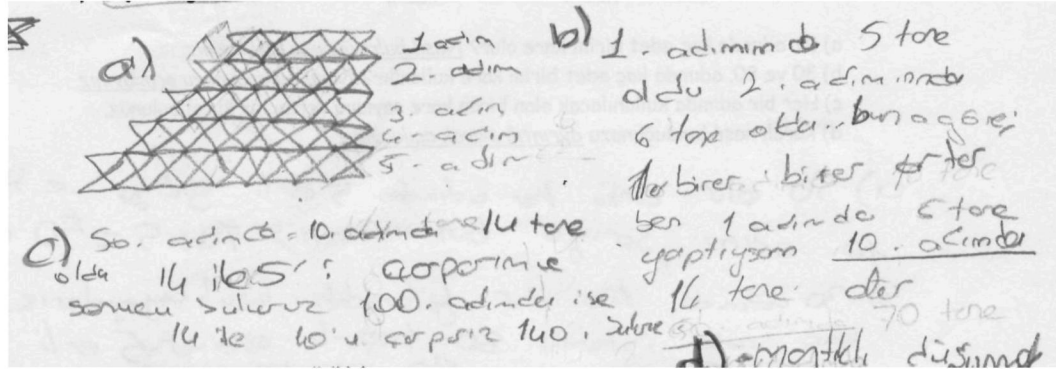 a)
1 adim
2. adim
3. adim
4. adim
5. adim
b) 1. adimında 5 tane
oldu 2. adımında
6 tane oldu buna göre;
birer birer
ben 1 adimda 5 tane
yaptıysam 10. adımda
14 tane. olur
70 tane
c) 50. adımda. 10. adımda tane 14 tane
oldu 14 ile 5'i çarparım ve
sonucu buluruz 100. adımda ise
14 ile 10'u çarparız 140.
d) mantıklı